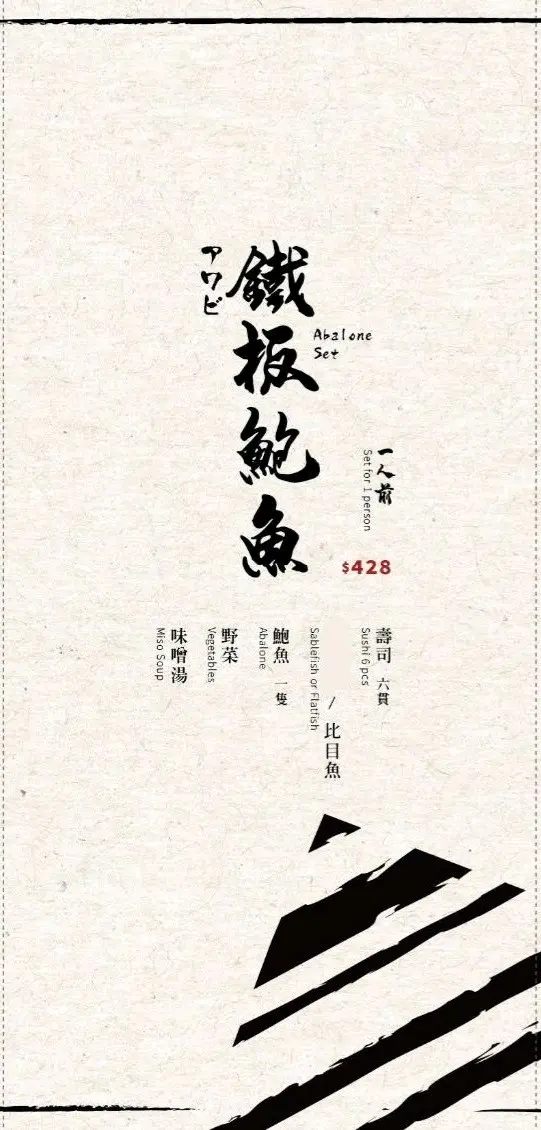 鐵板鮑魚
アワビ
Abalone
Set
一人前
Set for 1 person
$428
壽司 六貫
Sushi 6 pcs
/ 比目魚
Sablefish or Flatfish
鮑魚 一隻
Abalone
野菜
Vegetables
味噌湯
Miso Soup